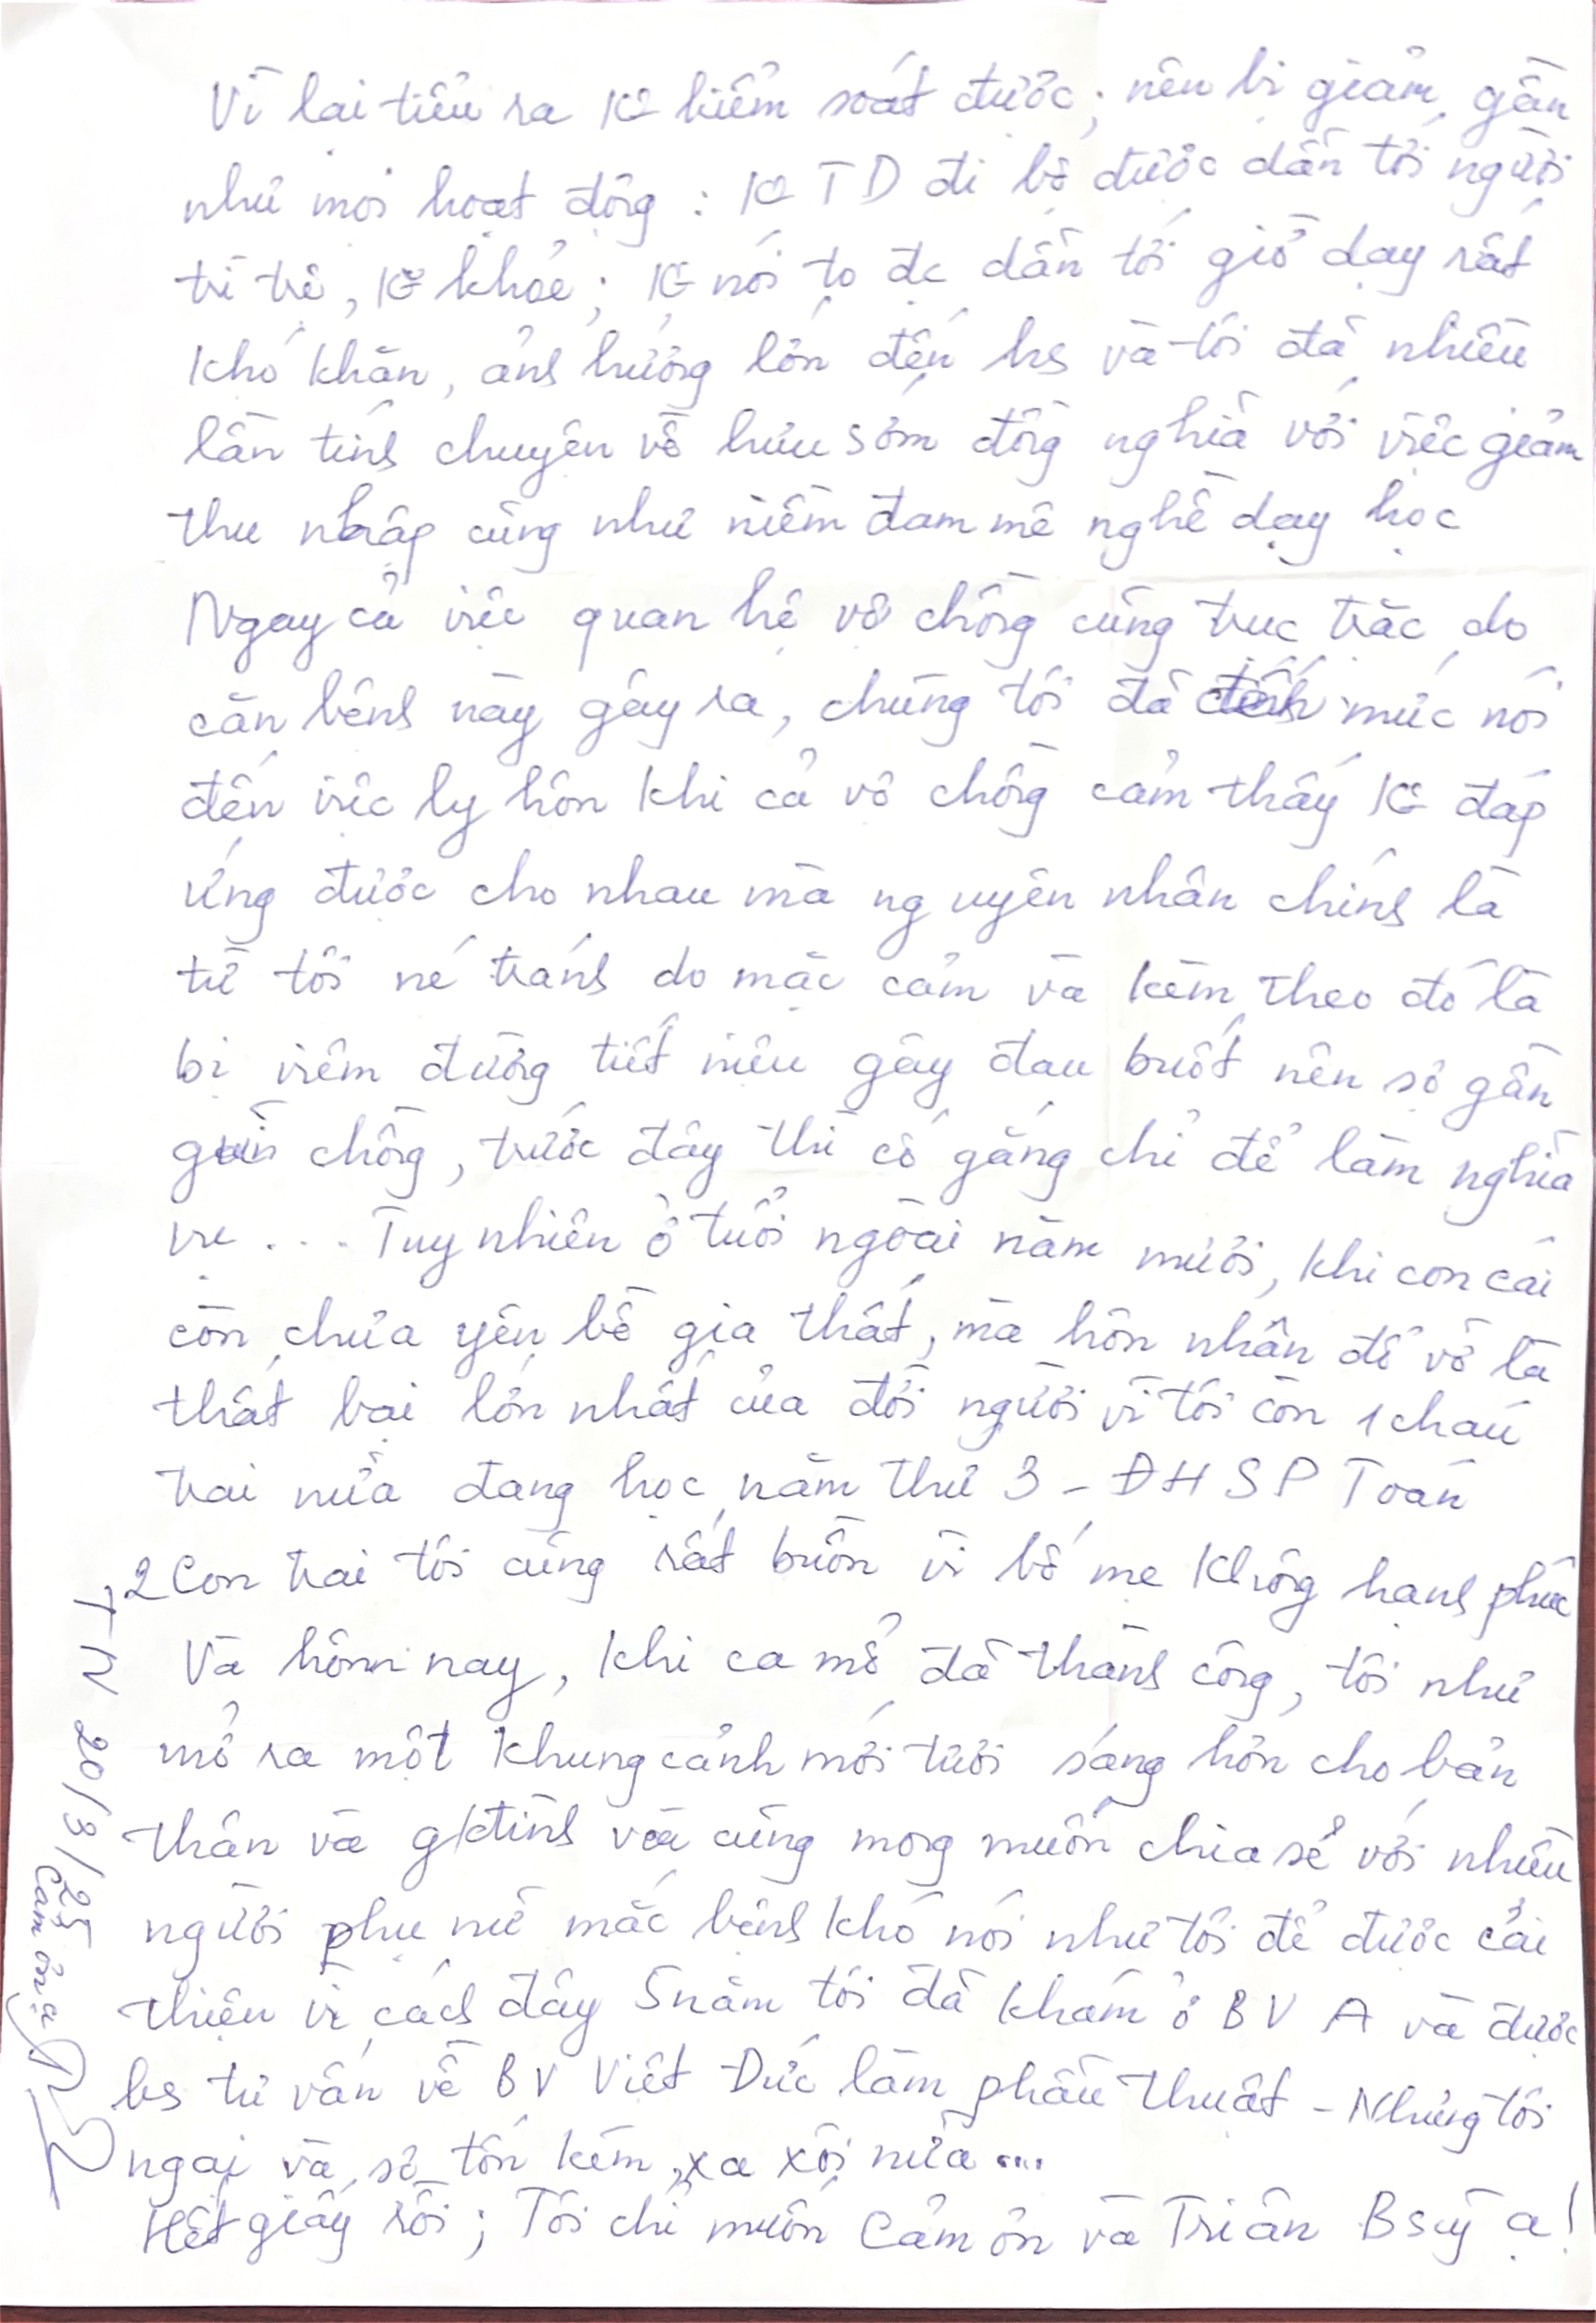 Vì lại tiểu ra K° kiểm soát được; nên bị giảm gần
như mọi hoạt động : K° TD đi bộ được dẫn tới người
trì trệ, K° khỏe; K° nói to đc dẫn tới giờ dạy rất
khó khăn, ảnh hưởng lớn đến hs và tôi đã nhiều
lần tính chuyện về hưu sớm đồng nghĩa với việc giảm
thu nhập cũng như niềm đam mê nghề dạy học
Ngay cả việc quan hệ vợ chồng cũng trục trặc do
căn bệnh này gây ra, chúng tôi đã đến mức nói
đến việc ly hôn khi cả vợ chồng cảm thấy K° đáp
ứng được cho nhau mà nguyên nhân chính là
từ tôi né tránh do mặc cảm và kèm theo đó là
bị viêm đường tiết niệu gây đau buốt nên sợ gần
gũi chồng, trước đây thì cố gắng chỉ để làm nghĩa
vụ . . . Tuy nhiên ở tuổi ngoài năm mươi, khi con cái
còn chưa yên bề gia thất, mà hôn nhân đổ vỡ là
thất bại lớn nhất của đời người vì tôi còn 1 cháu
trai nữa đang học năm thứ 3 - ĐHSP Toán
2 Con trai tôi cũng rất buồn vì bố mẹ không hạnh phúc
Và hôm nay, khi ca mổ đã thành công, tôi như
mở ra một khung cảnh mới tươi sáng hơn cho bản
thân và g/đình và cũng mong muốn chia sẻ với nhiều
người phụ nữ mắc bệnh khó nói như tôi để được cải
thiện vì cách đây 5 năm tôi đã khám ở BV A và được
bs tư vấn về BV Việt Đức làm phẫu thuật - Nhưng tôi
ngại và sợ tốn kém, xa xôi nữa ...
Hết giấy rồi; Tôi chỉ muốn Cảm ơn và Tri ân Bsỹ ạ!
TN 20/3/25
Cảm ơn ạ